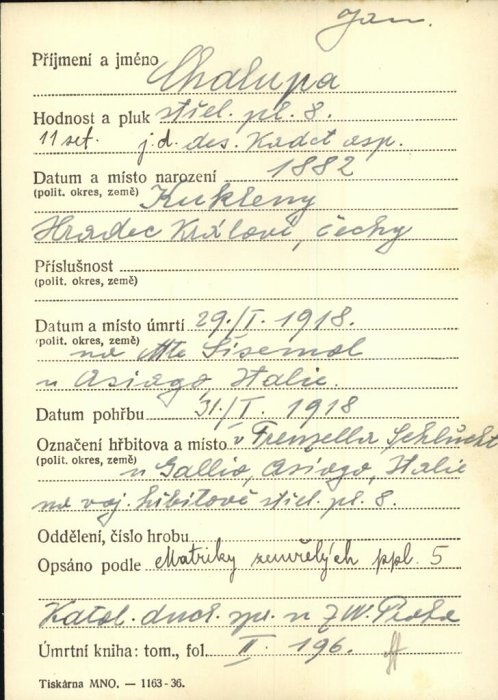 Jan.
Příjmení a jméno Chalupa
Hodnost a pluk střel. pl. 8.
11 set. j.d. des. Kadet asp.
Datum a místo narození 1882
(polit. okres, země) Kukleny
Hradec Králové, čechy
Příslušnost
(polit. okres, země)
Datum a místo úmrtí 29./I. 1918.
(polit. okres, země) na Mte Sisemol
u Asiago, Italie.
Datum pohřbu 31/I. 1918
Označení hřbitova a místo v Frenzella Schlucht
(polit. okres, země) u Gallio, Asiago, Italie
na voj. hřbitově střel. pl. 8.
Oddělení, číslo hrobu
Opsáno podle Matriky zemřelých ppl. 5
Katol. duch. spr. n Praha
Úmrtní kniha: tom., fol. II. 196.
Tiskárna MNO. — 1163-36.